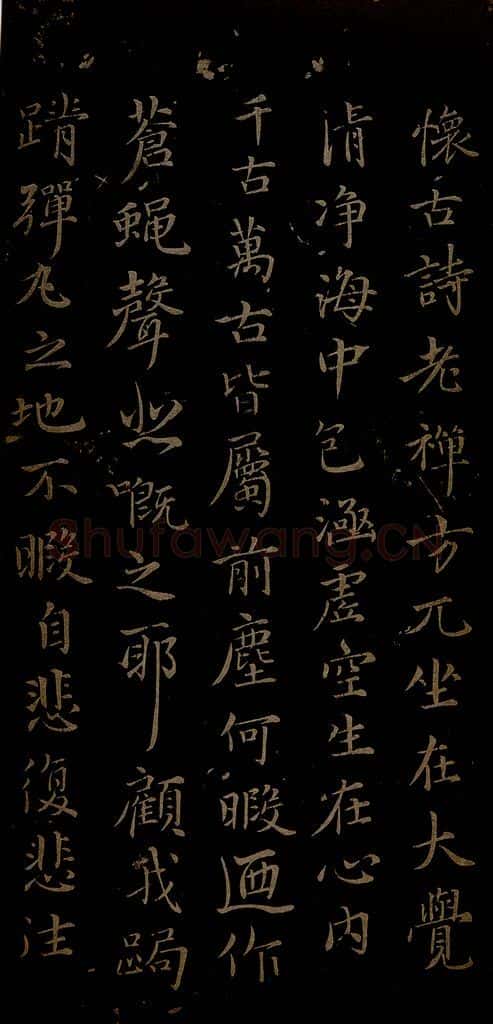 懷古詩老禪方兀坐在大覺
清净海中包涵虛空生在心內
千古萬古皆屬前塵何暇迺作
蒼蝇聲悲嘅之耶顧我跼
蹐彈丸之地不暇自悲復悲法
Shufawang.CN